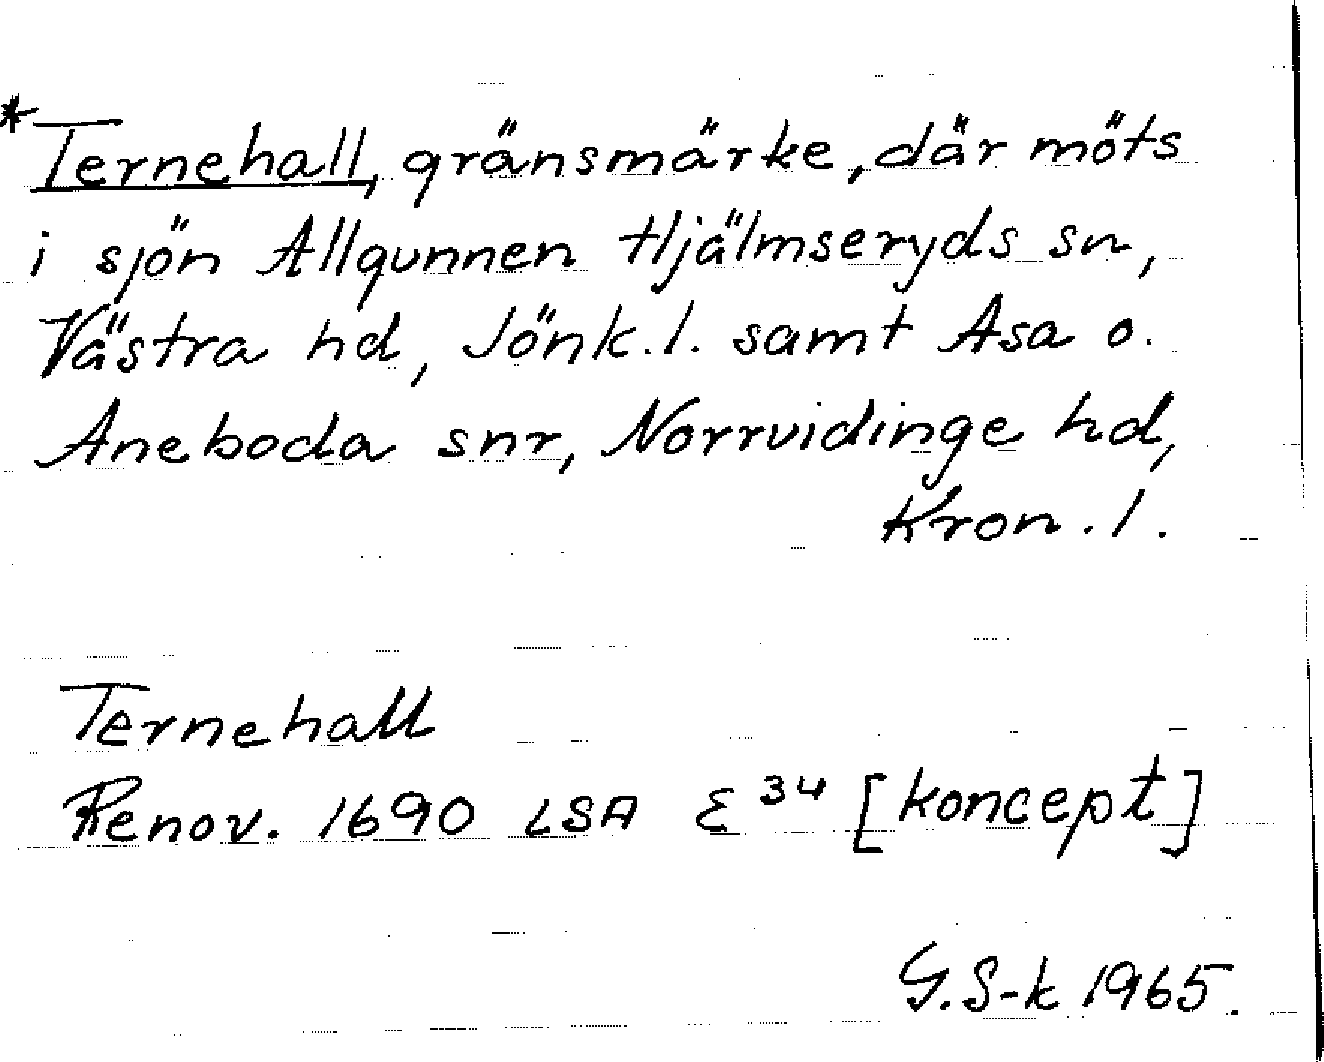 *Ternehall, gränsmärke, där möts
i sjön Allgunnen Hjälmseryds sn,
Västra hd, Jönk.l. samt Asa o.
Aneboda snr, Norrvidinge hd,
Kron.l.
Ternehall
Renov. 1690 LSA E 34 [koncept]
G.S-k 1965.